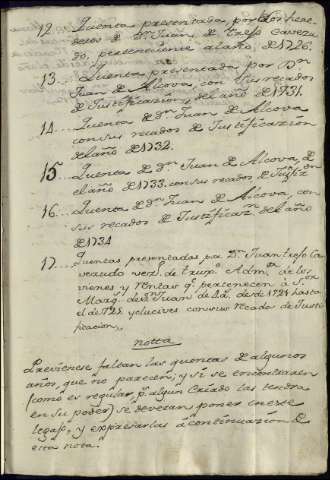 12. Quenta presentada por los here
deros de Dn. Juan, de trejo Caveza
do, perteneciente al año, de 1726.
13. Quenta presentada por Dn
Juan de Alcova, con sus recados
de Justificazion, del año de 1731.
14. Quenta de dn. Juan de Alcova
con sus recados de Justificazion
del año de 1732.
15. Quenta de dn. Juan de Alcova, de
el año, de 1733. con sus recados de Justifizon
16. Quenta de dn Juan de Alcova, con
sus recados de Justificazn. del año
de 1734
17. Quentas presentadas por Dn. Juan trejo Ca
vezudo vezo. de trupo. Admor. de los
vienes y Rentas qe. pertenecen à Sn.
Marqs. de Sn. Juan de Pda. desde 1724 hasta
el de 1725. ynclusives con sus recados de Justi
ficacion,
notta
Previenese faltan las quentas de algunos
años, que no parecen, y si se encontrasen
(como es regular pr. algun Criado las tendra
en su poder) se deveran poner en este
legajo, y expresarlas a continuazion de
esta nota.